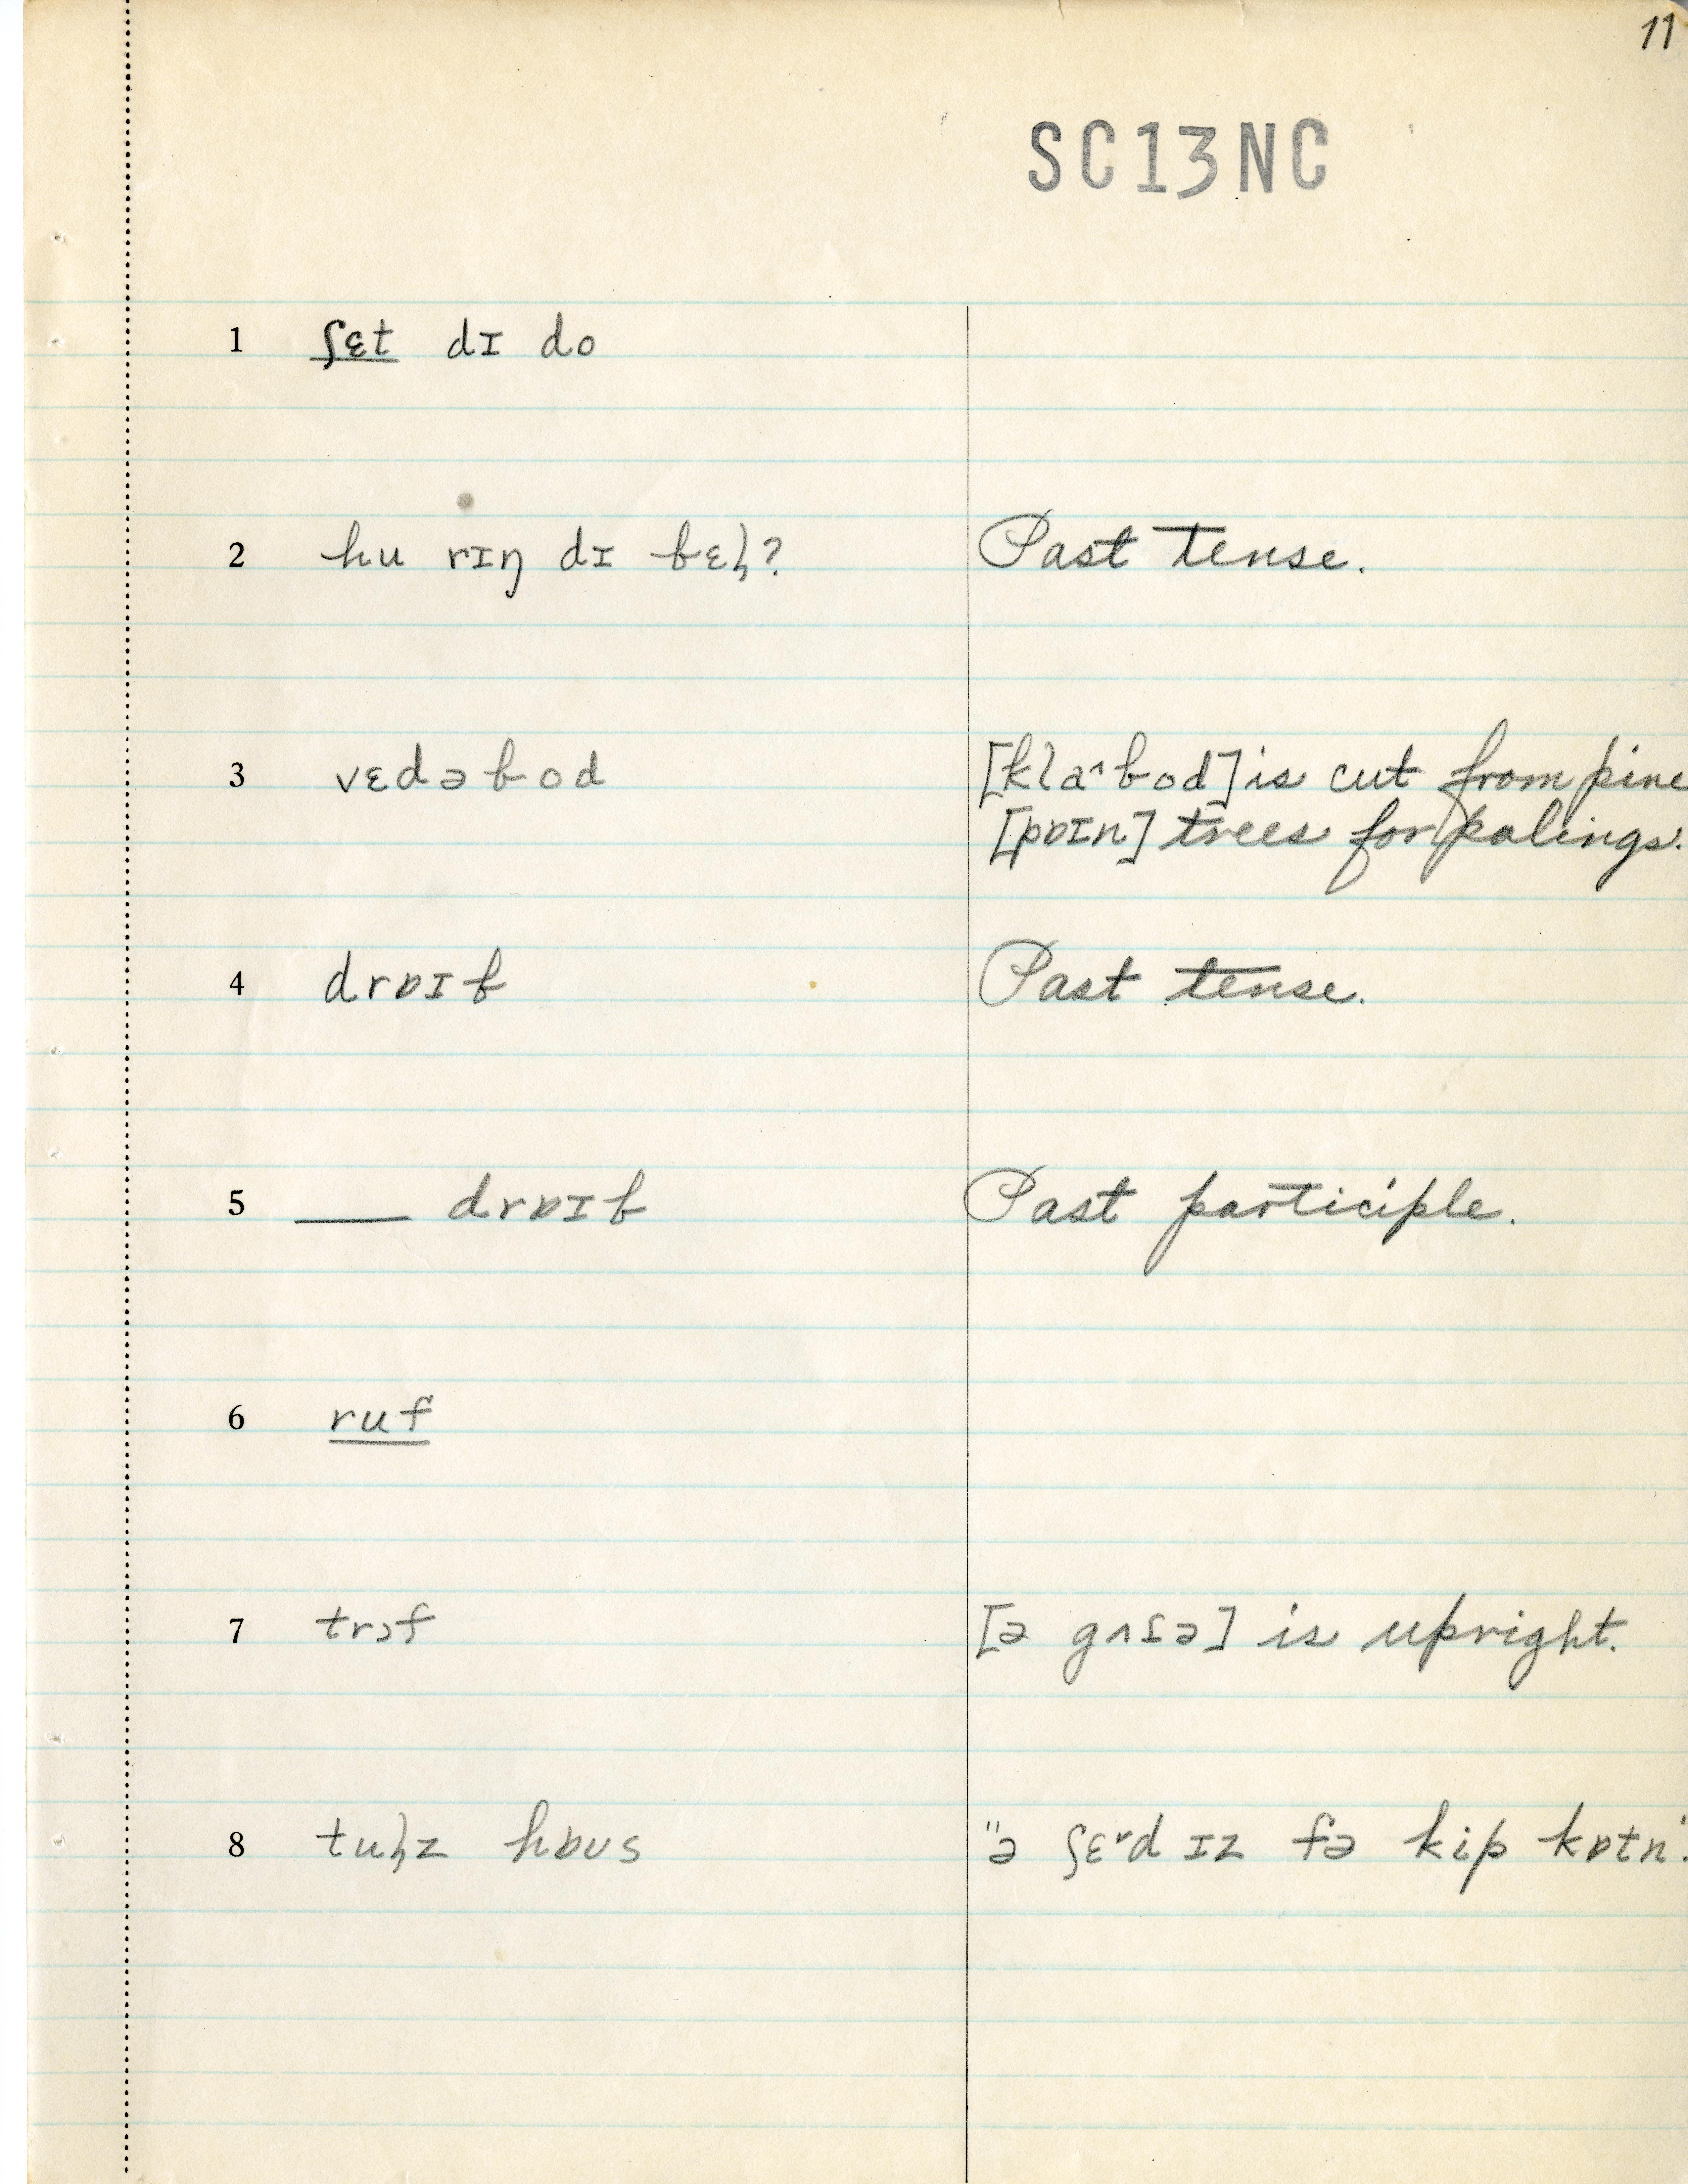 11
SC13NC
1 ʃɛt dɪ do
2 hu rɪŋ dɪ ɓɛl̥? Past tense.
3 vɛdəɓod [klaˑɓod] is cut from pine
[pɒɪn] trees for palings.
4 drɒɪɓ Past tense.
5 ___ drɒɪɓ Past participle.
6 ruf
7 trɔf [ə gʌtə] is upright.
8 tul̥z hɒʊs "ə ʃɛᵊd ɪz fə kip kɒtn".